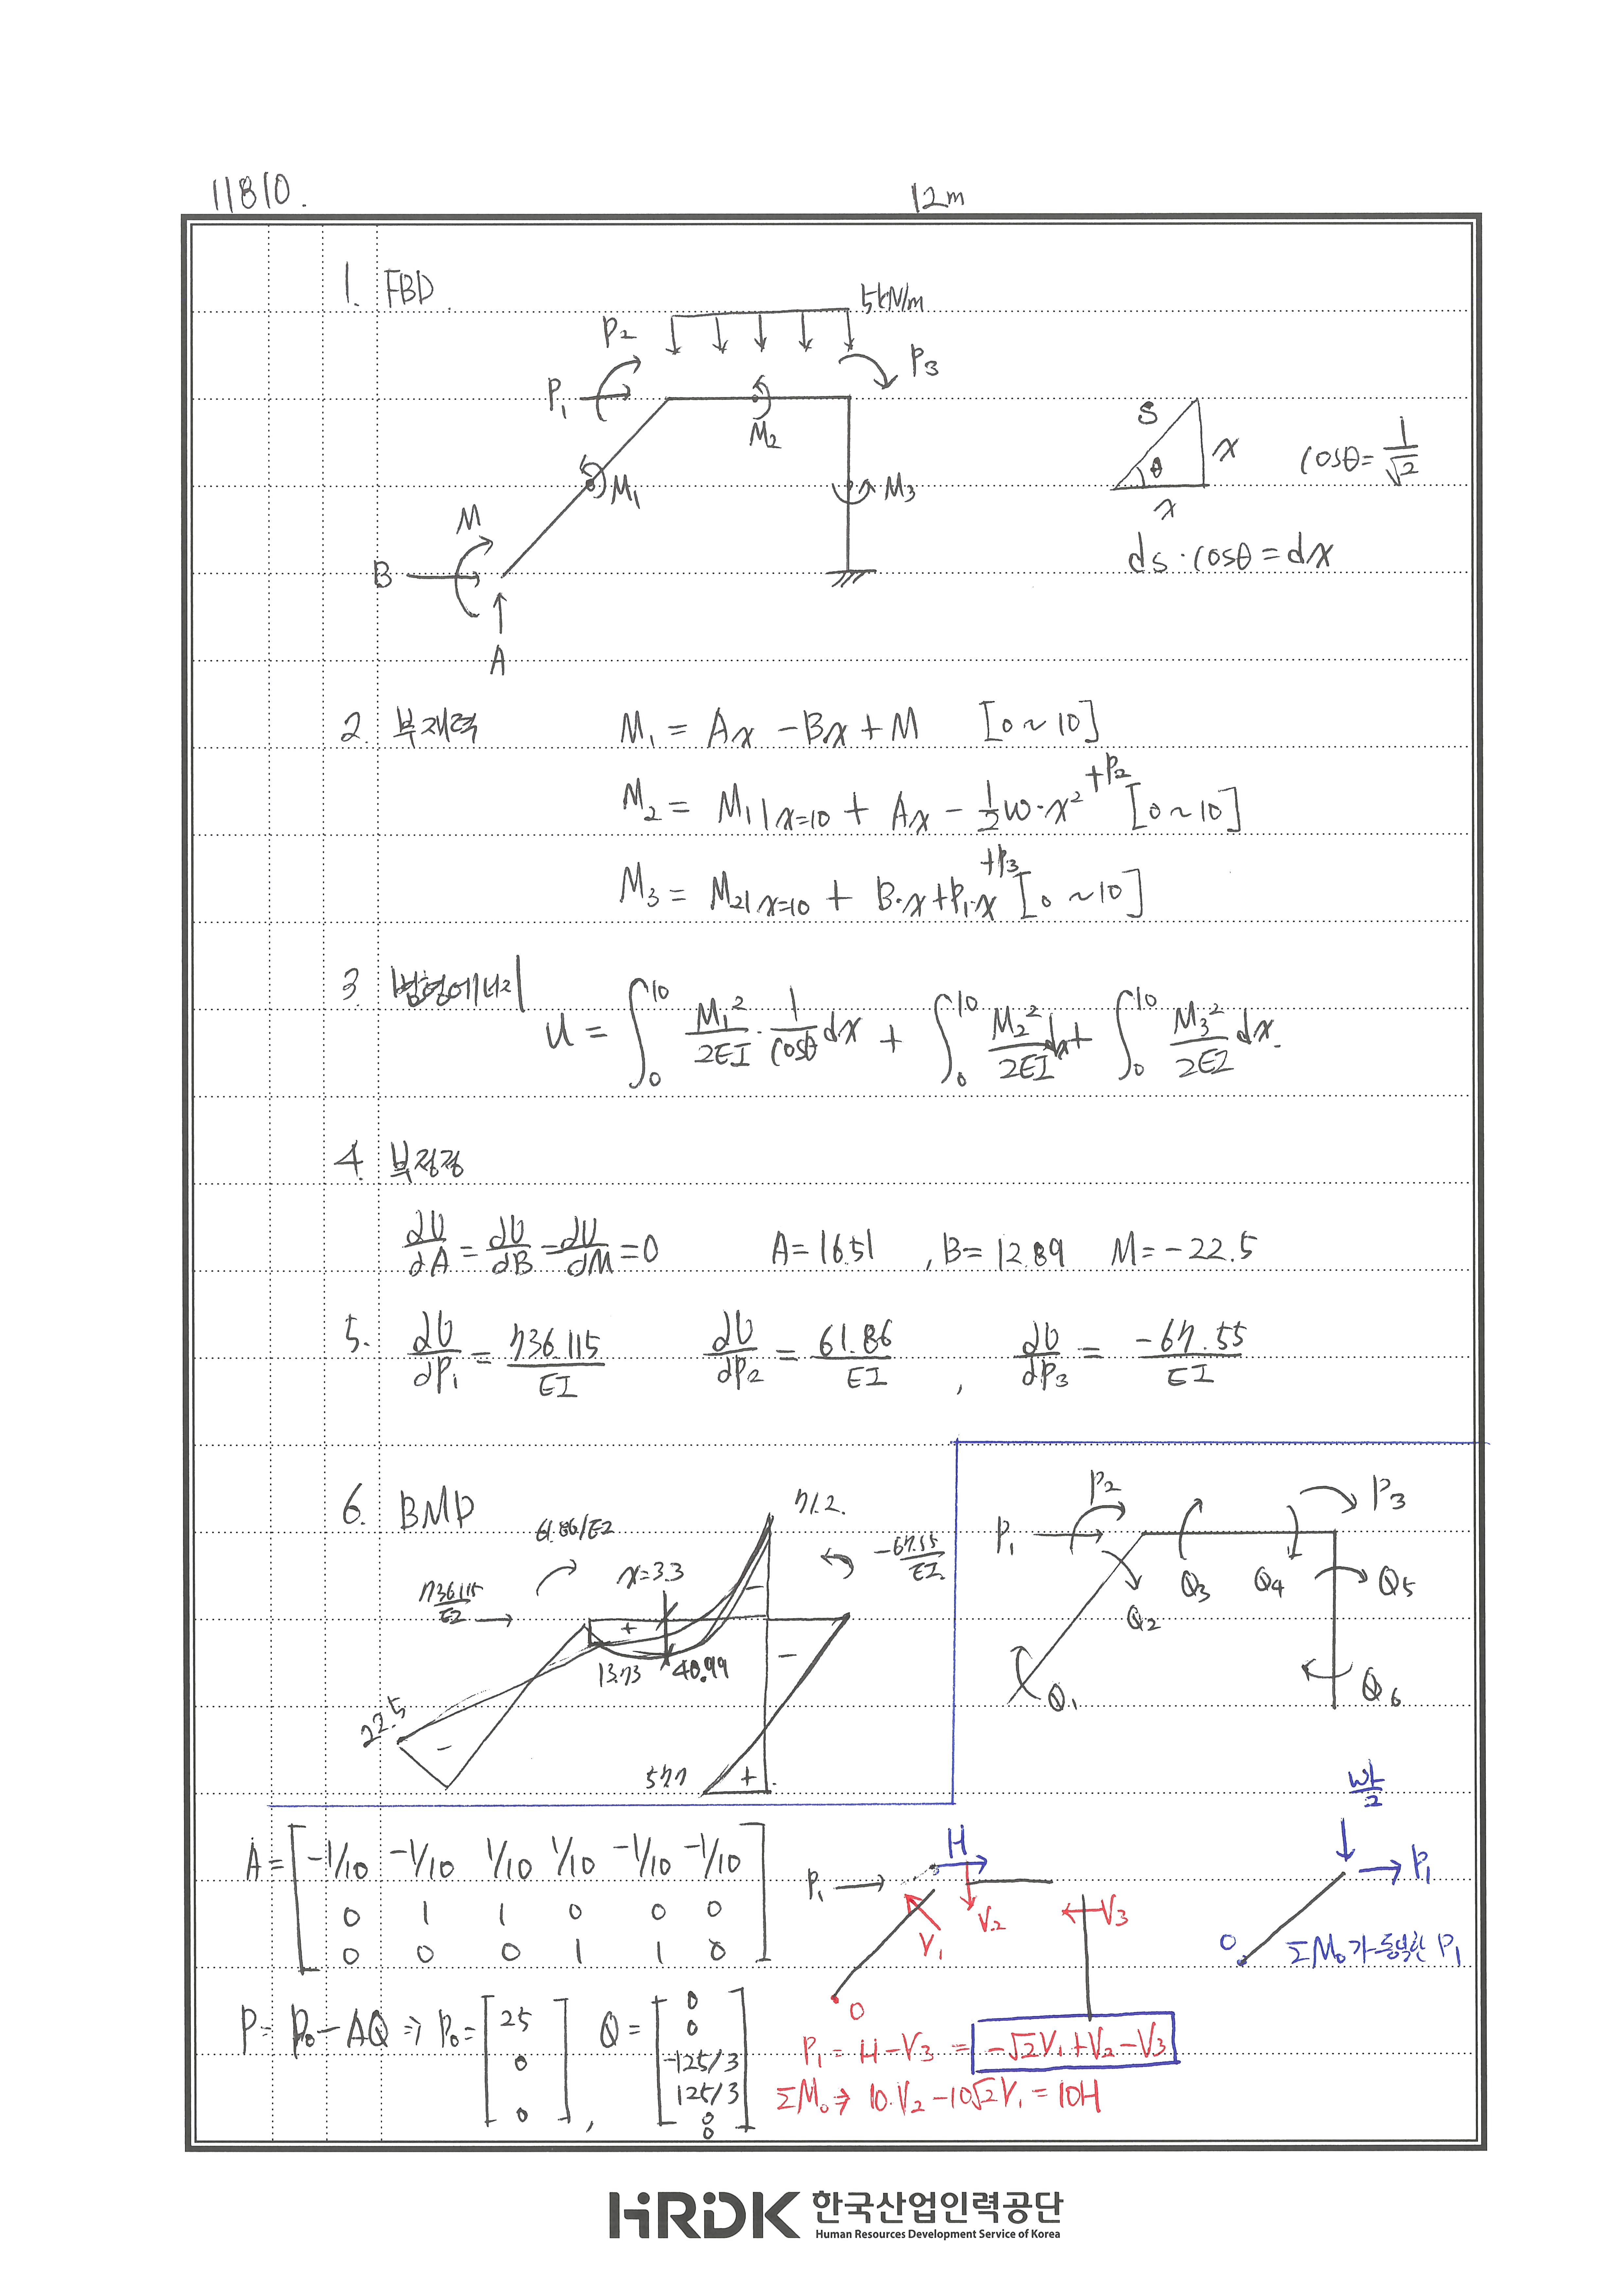 11810.
12m
1. FBD.
5kN/m
P₂
P₃
P₁
M₂
S
x
cosθ = 1/√2
θ
M₁
M₃
x
M
ds·cosθ = dx
B
A
2. 부재력 M₁ = Ax - Bx + M [0 ~ 10]
M₂ = M₁|x=10 + Ax - 1/2 w·x² + P₂ [0 ~ 10]
M₃ = M₂|x=10 + B·x + P₁·x + P₃ [0 ~ 10]
3 변형에너지
U = ∫₀¹⁰ M₁²/2EI · 1/cosθ dx + ∫₀¹⁰ M₂²/2EI dx + ∫₀¹⁰ M₃²/2EI dx.
4. 부정정
∂U/∂A = ∂U/∂B = ∂U/∂M = 0 A = 16.51 , B = 12.89 M = -22.5
5. ∂U/∂P₁ = 736.115/EI ∂U/∂P₂ = 61.86/EI , ∂U/∂P₃ = -67.55/EI
6. BMD
61.86/EI
71.2.
-67.55/EI
736.115/EI
x=3.3
+
-
13.73
40.99
-
22.5
-
57.7
+
P₂
P₃
P₁
Q₃
Q₄
Q₅
Q₂
Q₁
Q₆
A = [-1/10 -1/10 1/10 1/10 -1/10 -1/10
0 1 1 0 0 0
0 0 0 1 1 0]
P₁
H
V₂
V₃
V₁
O
wL/2
P₁
O
ΣM₀가 동일한 P₁
P = P₀ - AQ ⇒ P₀ = [25 0 0] , Q = [0 0 -125/3 125/3 0 0]
P₁ = H - V₃ = -√2V₁ + V₂ - V₃
ΣM₀ ⇒ 10·V₂ - 10√2V₁ = 10H
HRDK 한국산업인력공단
Human Resources Development Service of Korea